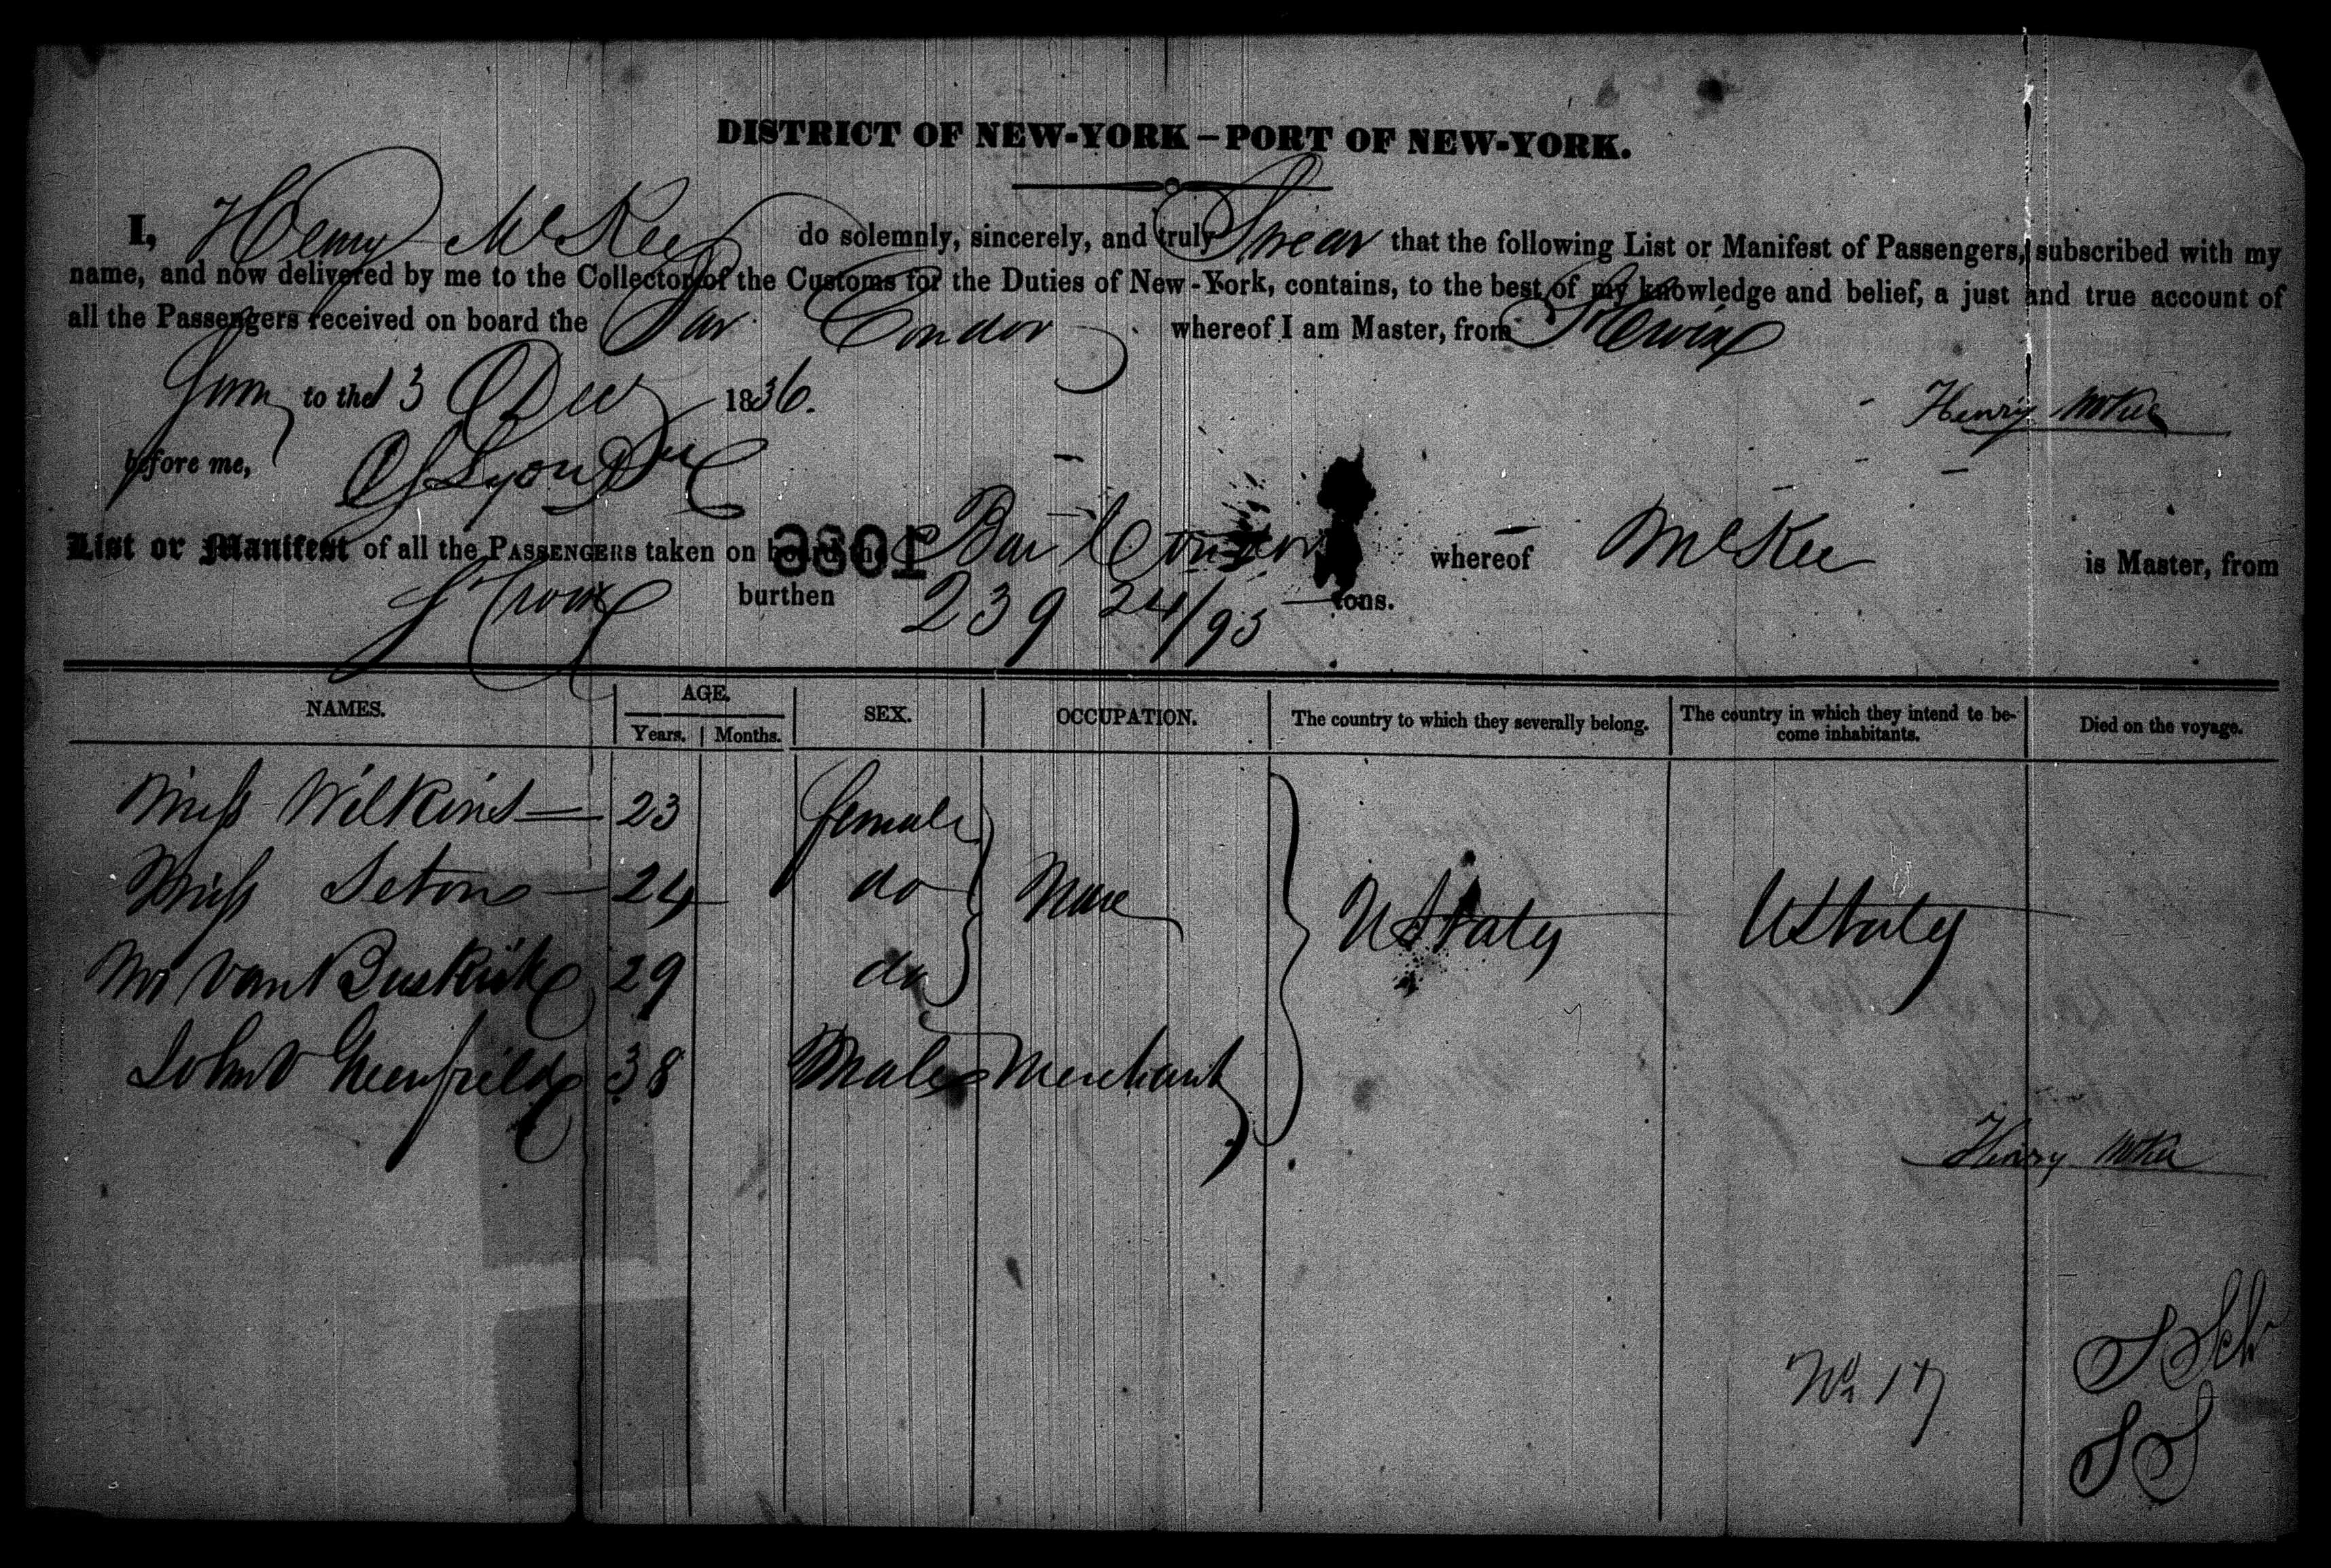 DISTRICT OF NEW-YORK – PORT OF NEW-YORK.
I, Henry McKee do solemnly, sincerely, and truly Swear that the following List or Manifest of Passengers, subscribed with my
name, and now delivered by me to the Collector of the Customs for the Duties of New-York, contains, to the best of my knowledge and belief, a just and true account of
all the Passengers received on board the Bar Condor whereof I am Master, from St Croix
to the 13 Dec 1836.
Henry McKee
before me,
List or Manifest of all the PASSENGERS taken on board the Bar Condor whereof McKee is Master, from
1086
St Croix burthen 239 24/95 tons.
NAMES. AGE. SEX. OCCUPATION. The country to which they severally belong. The country in which they intend to be- Died on the voyage.
Years. Months. come inhabitants.
Miss Wilkins 23 female
Miss Seton 24 do None U States U States
Van Buskirk 29 do
John Greenfield 38 Male Merchant
Henry McKee
No. 17